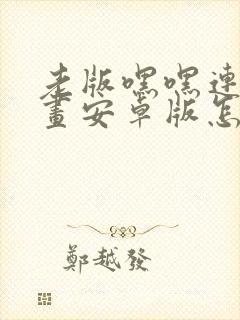 老版嘿嘿連
畫安卓版怎
鄭越發